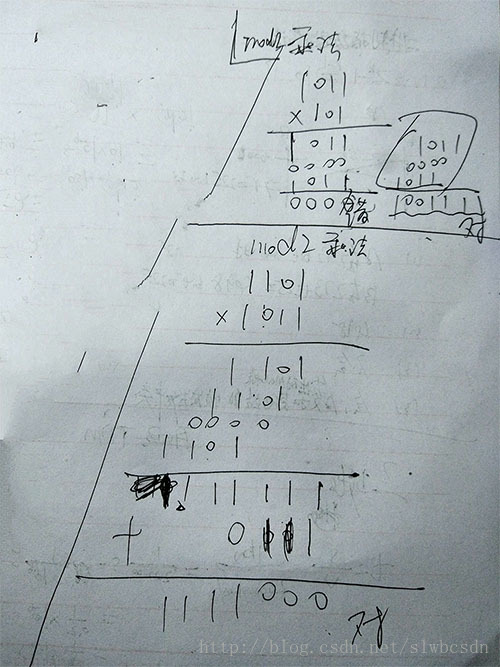 mod2 乘法
1011
× 101
1011
0000
1011
000 错
1011
0000
1011
100111
对
mod2 乘法
1101
× 1011
1101
1101
0000
1101
111111
+ 0 1
1111000
对
http://blog.csdn.net/slwbcsdn